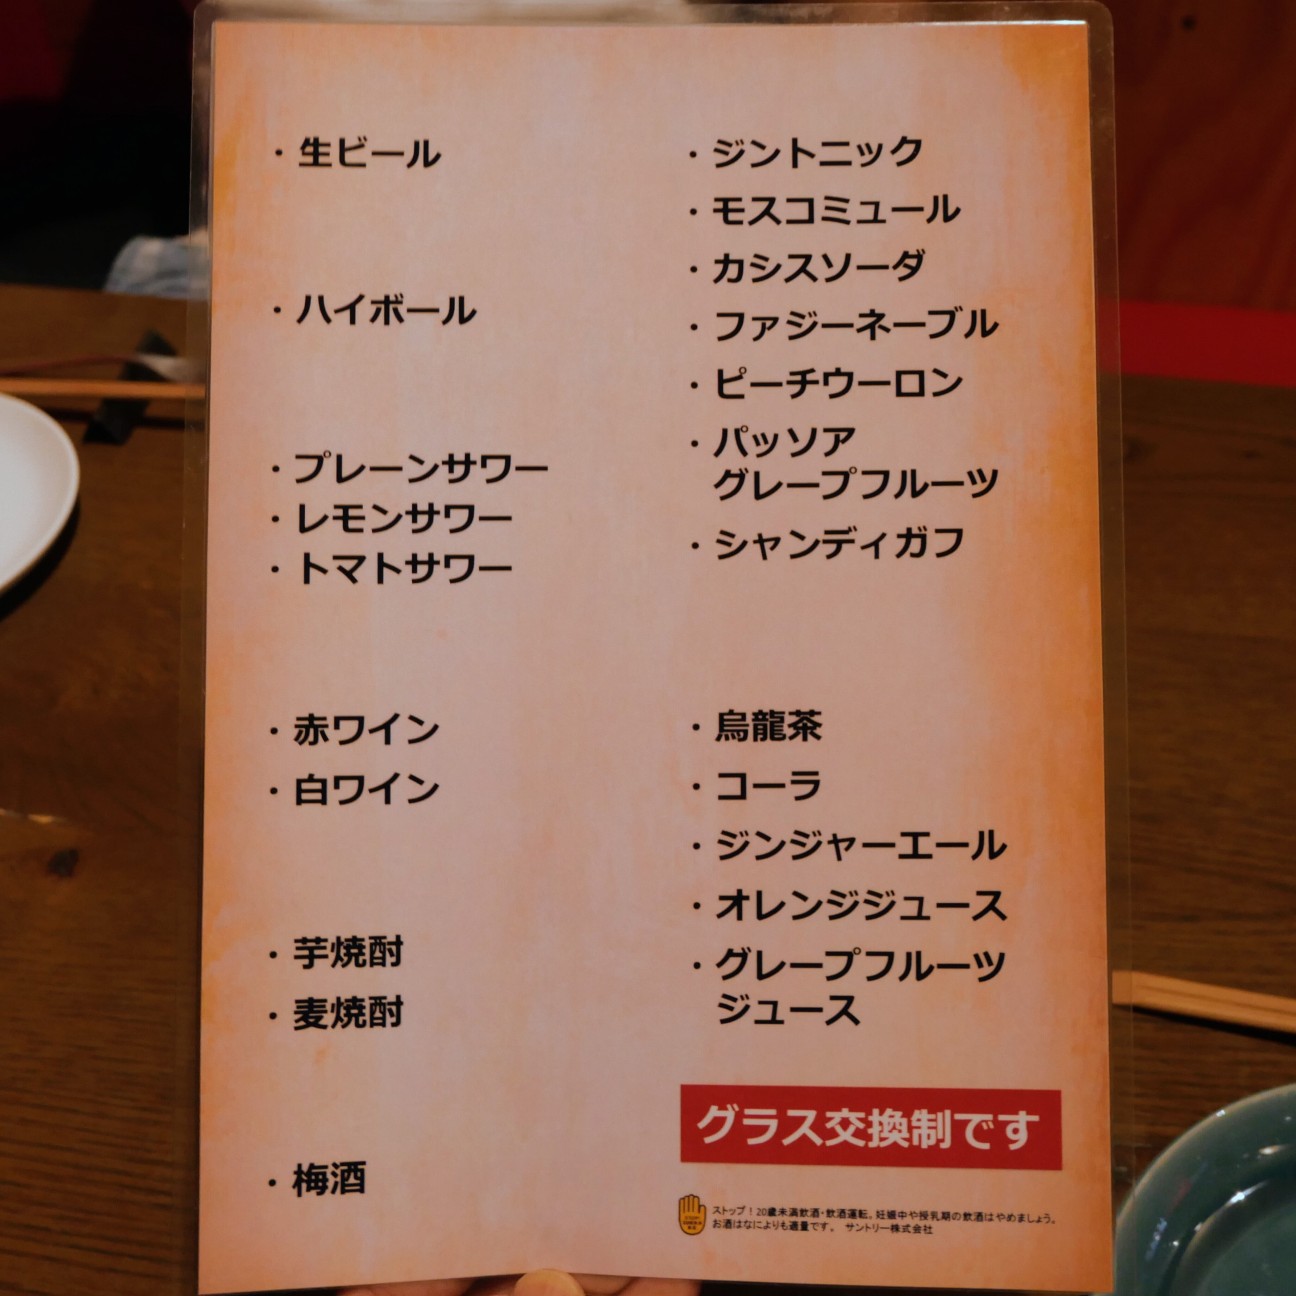 ・生ビール
・ハイボール
・プレーンサワー
・レモンサワー
・トマトサワー
・赤ワイン
・白ワイン
・芋焼酎
・麦焼酎
・梅酒
・ジントニック
・モスコミュール
・カシスソーダ
・ファジーネーブル
・ピーチウーロン
・パッソア
グレープフルーツ
・シャンディガフ
・烏龍茶
・コーラ
・ジンジャーエール
・オレンジジュース
・グレープフルーツ
ジュース
グラス交換制です
ストップ！20歳未満飲酒・飲酒運転。妊娠中や授乳期の飲酒はやめましょう。
お酒はなによりも適量です。 サントリー株式会社